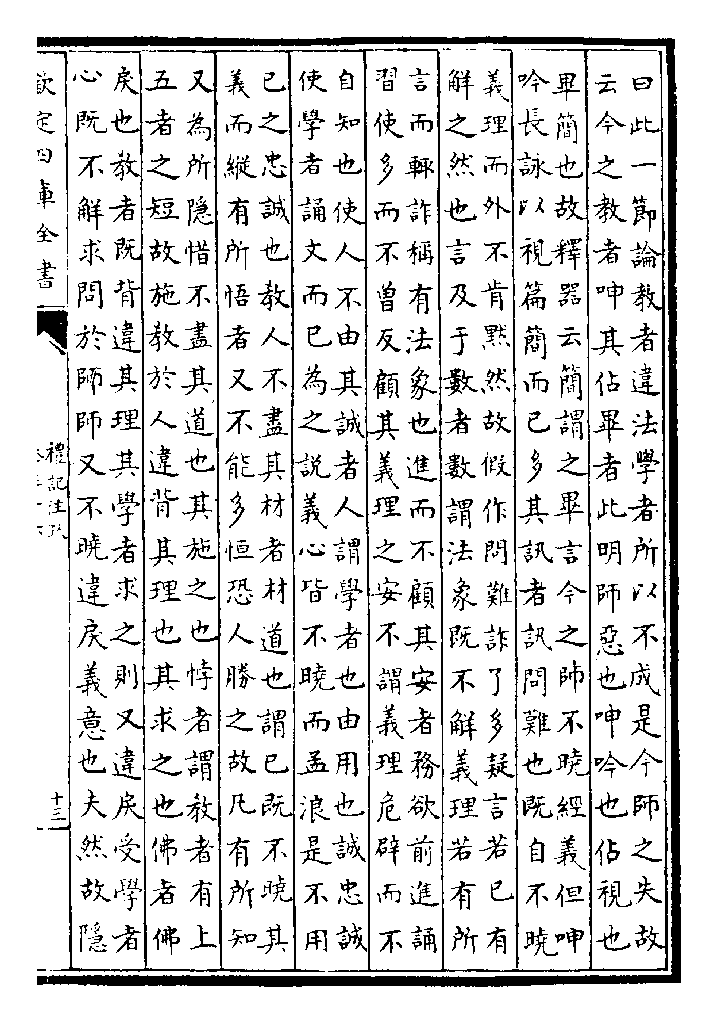 曰此一節論教者違法學者所以不成是今師之失故
云今之教者呻其佔畢者此明師惡也呻吟也佔視也
畢簡也故釋器云簡謂之畢言今之師不曉經義但呻
吟長詠以視篇簡而已多其訊者訊問難也既自不曉
義理而外不肯黙然故假作問難詐了多疑言若已有
解之然也言及于數者數謂法象既不解義理若有所
言而輒詐稱有法象也進而不顧其安者務欲前進誦
習使多而不曾反顧其義理之安不謂義理危辟而不
自知也使人不由其誠者人謂學者也由用也誠忠誠
使學者誦文而已為之説義心皆不曉而孟浪是不用
已之忠誠也教人不盡其材者材道也謂已既不曉其
義而縱有所悟者又不能多恒恐人勝之故凡有所知
又為所隱惜不盡其道也其施之也悖者謂教者有上
五者之短故施教於人違背其理也其求之也佛者佛
戾也教者既背違其理其學者求之則又違戾受學者
心既不解求問於師師又不曉違戾義意也夫然故隱
欽定四庫全書
禮記注疏
十三